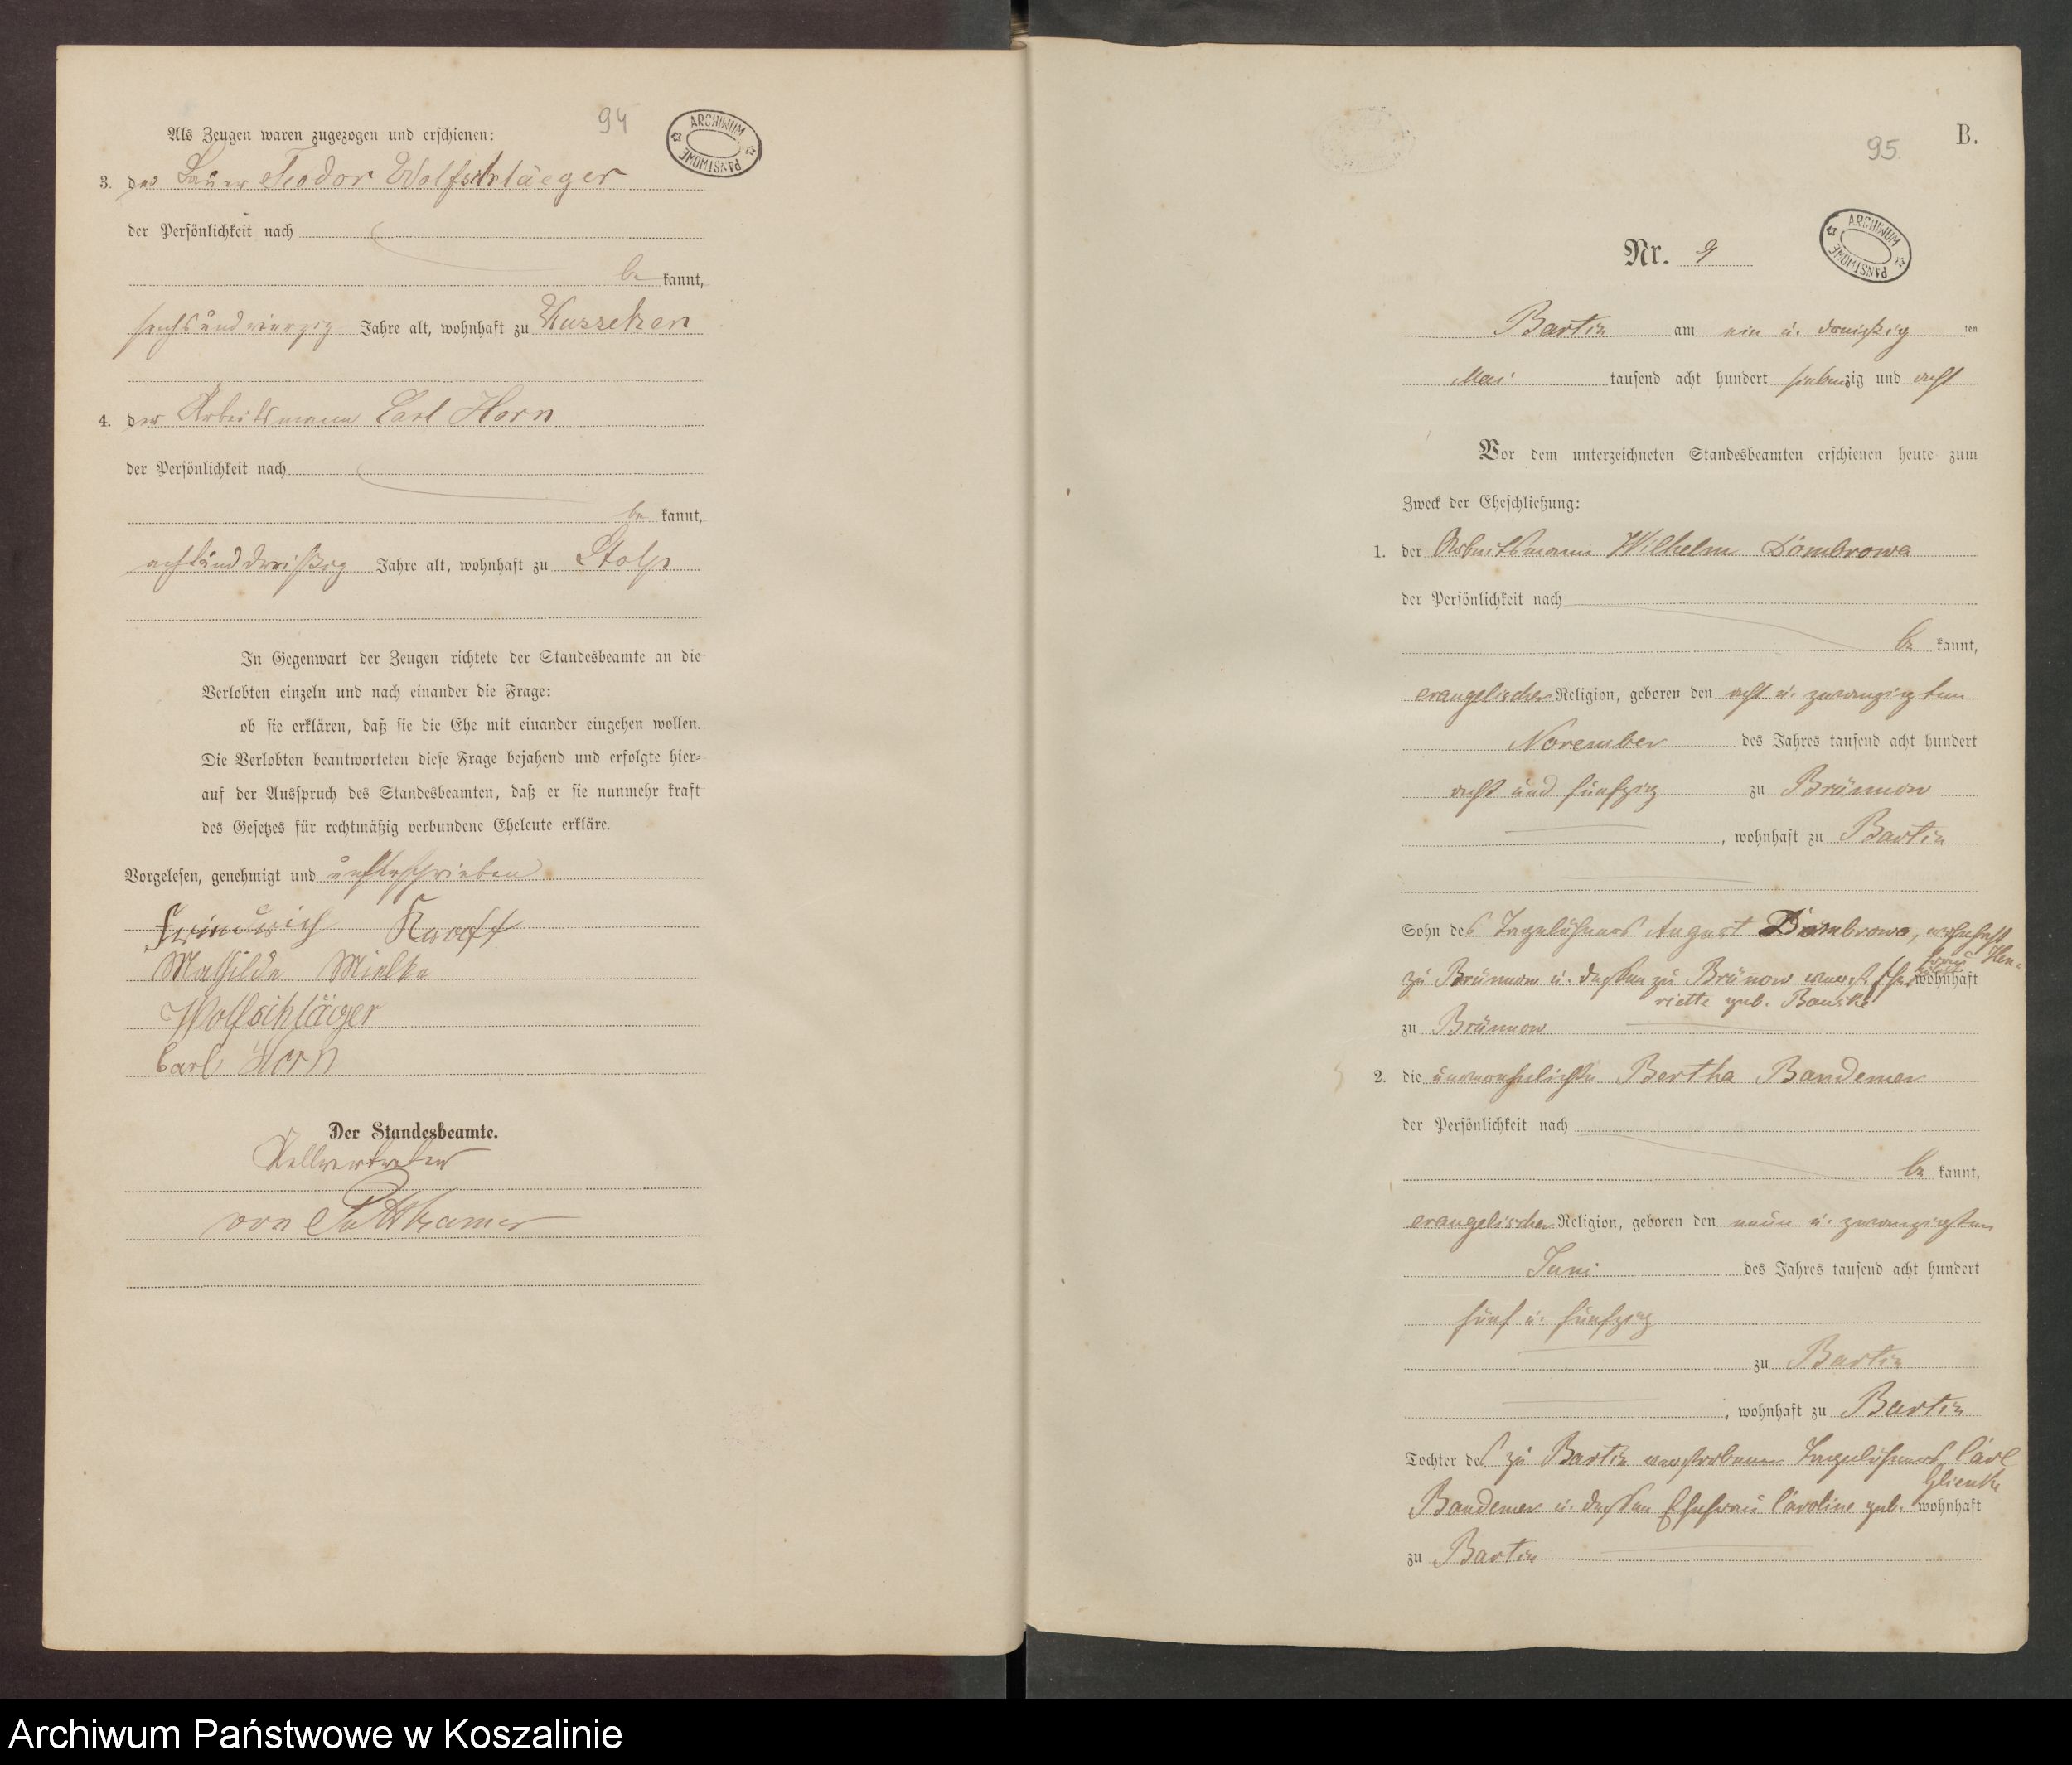 94
ARCHIWUM PAŃSTWOWE
Als Zeugen waren zugezogen und erschienen:
3. der Bauer Teodor Wolfschlaeger
der Persönlichkeit nach
be kannt,
sechsundvierzig Jahre alt, wohnhaft zu Kusseken
4. der Arbeitsmann Carl Horn
der Persönlichkeit nach
be kannt,
achtunddreißig Jahre alt, wohnhaft zu Stolp
In Gegenwart der Zeugen richtete der Standesbeamte an die
Verlobten einzeln und nach einander die Frage:
ob sie erklären, daß sie die Ehe mit einander eingehen wollen.
Die Verlobten beantworteten diese Frage bejahend und erfolgte hier-
auf der Ausspruch des Standesbeamten, daß er sie nunmehr kraft
des Gesetzes für rechtmäßig verbundene Eheleute erkläre.
Vorgelesen, genehmigt und unterschrieben
Friedrich
Mathilde Mielke
Wolfschläger
Carl Horn
Der Standesbeamte.
Stellvertreter
von Puttkamer
B.
95.
ARCHIWUM PAŃSTWOWE
Nr. 9
Bartin am ein u. dreißig ten
Mai tausend acht hundert siebenzig und acht
Vor dem unterzeichneten Standesbeamten erschienen heute zum
Zweck der Eheschließung:
1. der Arbeitsmann Wilhelm Dombrowa
der Persönlichkeit nach
be kannt,
evangelischer Religion, geboren den acht u. zwanzigsten
November des Jahres tausend acht hundert
acht und fünfzig zu Brünnow
, wohnhaft zu Bartin
Sohn des Tagelöhners August Dombrowa, wohnhaft
zu Brünnow u. dessen zu Brünnow verst. Ehefrau Hen-
riette geb. Banske wohnhaft
zu Brünnow
2. die unverehelichte Bertha Bandemer
der Persönlichkeit nach
be kannt,
evangelischer Religion, geboren den neun u. zwanzigsten
Juni des Jahres tausend acht hundert
fünf u. fünfzig
zu Bartin
, wohnhaft zu Bartin
Tochter des zu Bartin verstorbenen Tagelöhners Carl
Bandemer u. dessen Ehefrau Caroline geb. Glienke wohnhaft
zu Bartin
Archiwum Państwowe w Koszalinie